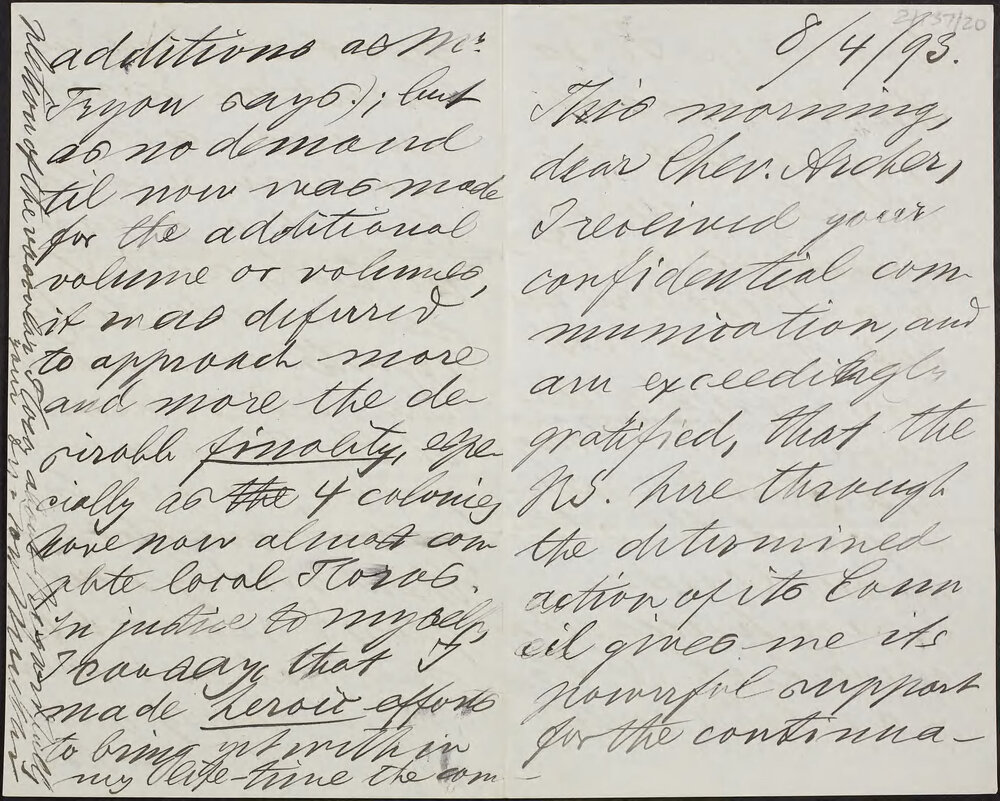 8/4/93.
This morning,
dear Chev. Archer,
I received your
confidential com-
munication, and
am exceedingly
gratified, that the
RS. here through
the determined
action of its Coun
cil gives me its
powerful support
for the continua-
additions as Mr.
Tryon says.); but
as no demand
til now was made
for the additional
volume or volumes,
it was deferred
to approach more
and more the de-
sirable finality, espe-
cially as the 4 colonies
have now almost com
plete local Floras.
In justice to myself,
I can say, that I
made heroic efforts
to bring yet within
my life-time the com-
pletion of the vascular Flora
Regardfully
your
von Mueller